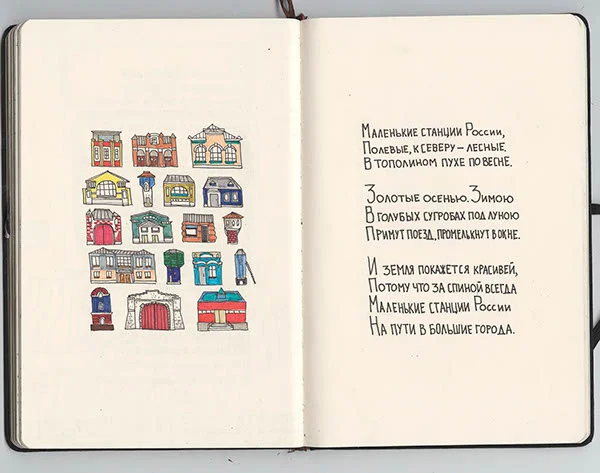 Маленькие станции России,
Полевые, к северу – лесные.
В тополином пухе по весне.
Золотые осенью. Зимою
В голубых сугробах под луною
Примут поезд, промелькнут в окне.
И земля покажется красивей,
Потому что за спиной всегда
Маленькие станции России
На пути в большие города.